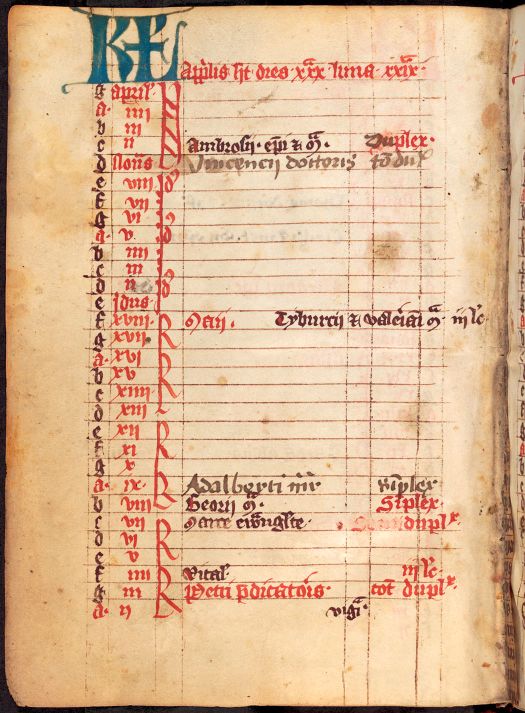 KL Ap̄lis ht dies xxx luna xxix.
g april'
a. iiii
b iii
c ii Ambrosii. ep̄i & c̄. Duplex.
d Non̄s Vincencii doctoris to᷒ dux
e viii Id
f vii
g vi
a. v.
b iiii
c iii
d ii
e Idus
f xviii. maii. Tyburcii & valer̄iani m̄. iii lc̄
g xvii.
a. xvi
b xv
c xiiii
d xiii
e xii
f xi
g x
a. ix. Adalberti mr̄ Sīplex
b viii Georii m̄. Sīplex.
c vii marci ewāgste. Semi duplx.
d vi
e v
f iiii vital' iii lc̄
g iii Petri p̄dicatoris. tot̄ duplx.
a. ii vigi